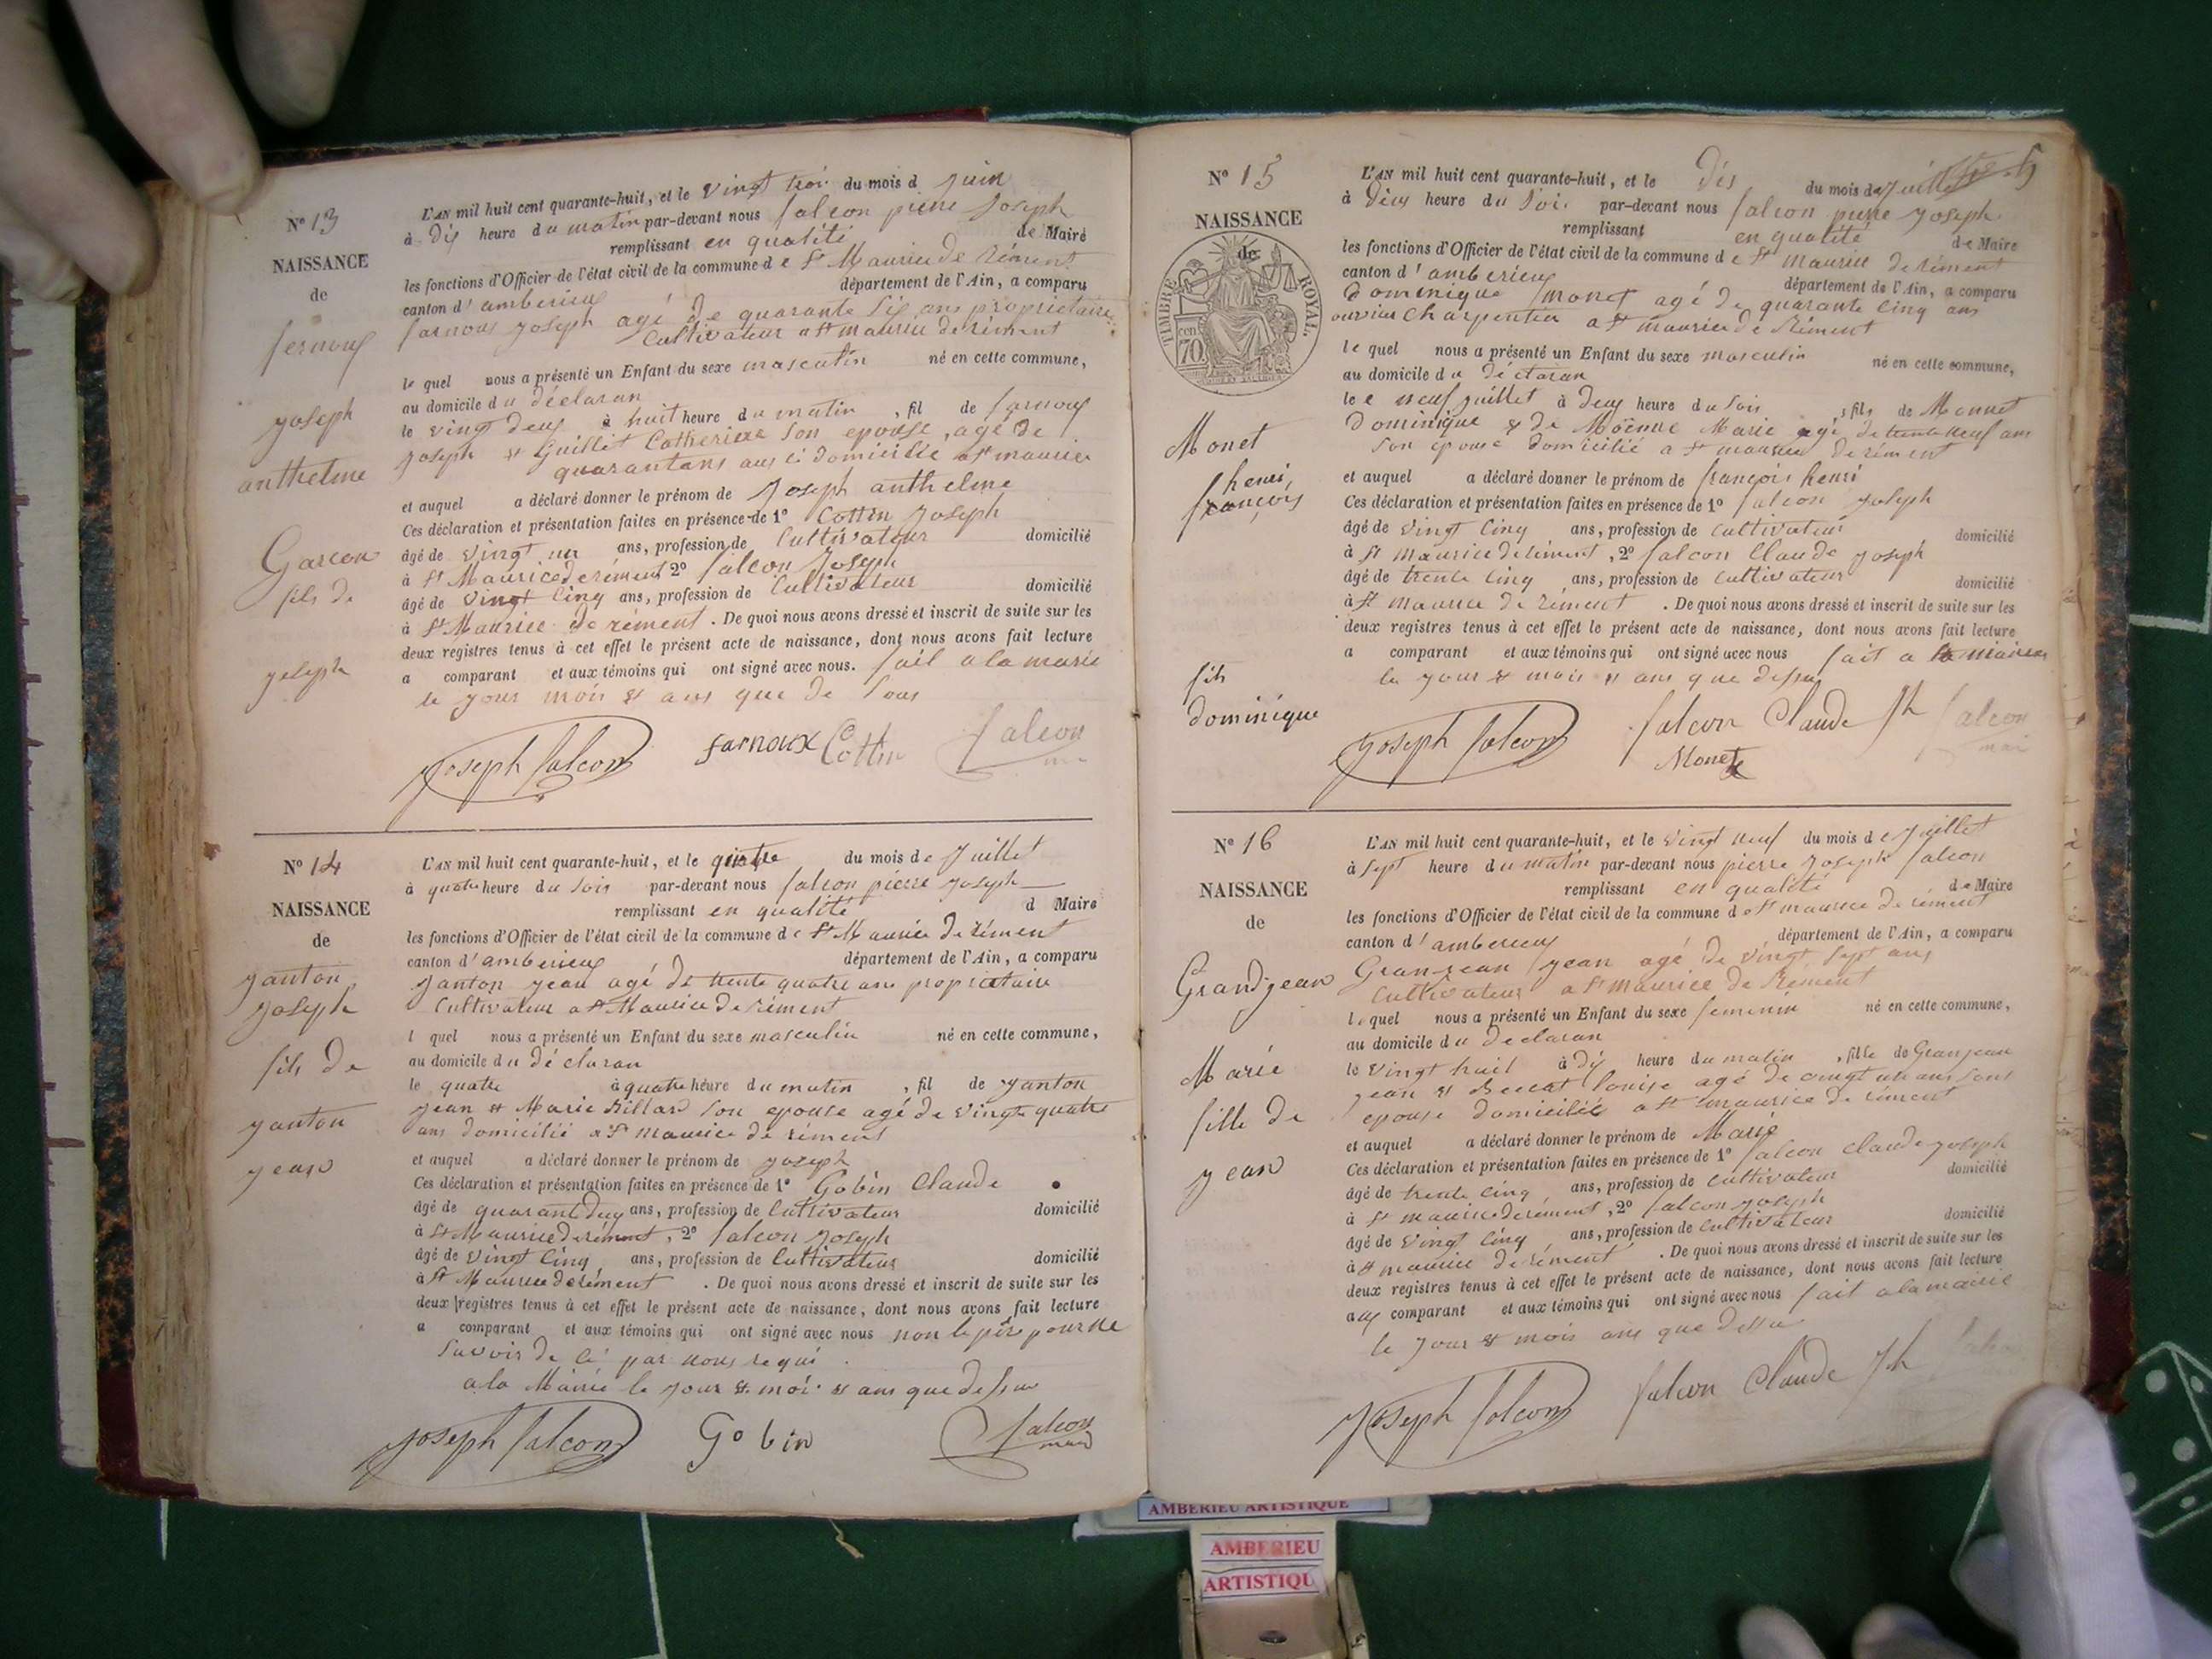 N° 13
NAISSANCE
de
fernoux
joseph
anthelme
Garcon
fils de
joseph
L'AN mil huit cent quarante-huit, et le vingt troi du mois d juin
à dix heure du matin par-devant nous falcon pierre joseph
remplissant en qualité de Maire
les fonctions d'Officier de l'état civil de la commune de St Maurice de rément
canton d'amberieux département de l'Ain, a comparu
farnoux joseph agé de quarante six ans proprietaire
Cultivateur a st maurice de rément
le quel nous a présenté un Enfant du sexe masculin né en cette commune,
au domicile du déclaran
le vingt deux à huit heure du matin , fil de farnoux
joseph et Guillet Catherine son epouse, agé de
quarantans aus i domicilié a st maurice
et auquel a déclaré donner le prénom de joseph anthelme
Ces déclaration et présentation faites en présence de 1° Cottin joseph
âgé de vingt un ans, profession de Cultivateur domicilié
à St Maurice de rément 2° falcon joseph
âgé de vingt cinq ans, profession de Cultivateur domicilié
à St Maurice de rément . De quoi nous avons dressé et inscrit de suite sur les
deux registres tenus à cet effet le présent acte de naissance, dont nous avons fait lecture
a comparant et aux témoins qui ont signé avec nous. fait a la marie
le jour mois et ans que de sous
joseph falcon farnoux Cottin falcon
N° 14
NAISSANCE
de
janton
joseph
fils de
janton
jean
L'AN mil huit cent quarante-huit, et le quatre du mois de juillet
à quatre heure du soir par-devant nous falcon pierre joseph
remplissant en qualité d Maire
les fonctions d'Officier de l'état civil de la commune de St Maurice de rément
canton d'amberieux département de l'Ain, a comparu
janton jean agé de trente quatre ans propriataire
Cultivateur a st Maurice de rément
l quel nous a présenté un Enfant du sexe masculin né en cette commune,
au domicile du dé claran
le quatre à quatre heure du matin , fil de janton
jean et Marie Billard son epouse agé de vingt quatre
ans domicilié a St maurice de rément
et auquel a déclaré donner le prénom de joseph
Ces déclaration et présentation faites en présence de 1° Gobin Claude
âgé de quarant deux ans, profession de Cultivateur domicilié
à St Maurice de rément, 2° falcon joseph
âgé de vingt cinq ans, profession de Cultivateur domicilié
à St Maurice de rément . De quoi nous avons dressé et inscrit de suite sur les
deux registres tenus à cet effet le présent acte de naissance, dont nous avons fait lecture
a comparant et aux témoins qui ont signé avec nous non le père pour ne
savoir de cé par nous requi .
a la Mairie le jour et moi et ans que dessus
joseph falcon Gobin falcon
N° 15
NAISSANCE
de
TIMBRE ROYAL
70 cen
Monet
henri,
françois
fils
dominique
L'AN mil huit cent quarante-huit, et le dis du mois de juillet
à deux heure du soir par-devant nous falcon pierre joseph
remplissant en qualité de Maire
les fonctions d'Officier de l'état civil de la commune de St maurice de rément
canton d'amberieux département de l'Ain, a comparu
dominique monet agé de quarante cinq ans
ouvrier Charpentier a st maurice de Rément
le quel nous a présenté un Enfant du sexe masculin né en cette commune,
au domicile du déclaran
le neuf juillet à deux heure du soir , fils de Monnet
dominique et de Moenne Marie agé de trente neuf ans
son épouse domicilié a st maurice de rément
et auquel a déclaré donner le prénom de françois henri
Ces déclaration et présentation faites en présence de 1° falcon joseph
âgé de vingt cinq ans, profession de cultivateur domicilié
à st maurice de rément, 2° falcon Claude joseph
âgé de trente cinq ans, profession de cultivateur domicilié
à St maurice de rément . De quoi nous avons dressé et inscrit de suite sur les
deux registres tenus à cet effet le présent acte de naissance, dont nous avons fait lecture
a comparant et aux témoins qui ont signé avec nous fait a la mairie
le jour et mois et ans que dessu
joseph falcon falcon Claude Jh falcon
Monet
N° 16
NAISSANCE
de
Grandjean
Marie
fille de
jean
L'AN mil huit cent quarante-huit, et le vingt neuf du mois de juillet
à sept heure du matin par-devant nous pierre joseph falcon
remplissant en qualité de Maire
les fonctions d'Officier de l'état civil de la commune de st maurice de rément
canton d'amberieux département de l'Ain, a comparu
Granjean jean agé de vingt sept ans
Cultivateur a st maurice de Rément
le quel nous a présenté un Enfant du sexe feminin né en cette commune,
au domicile du declaran
le vingt huit à dix heure du matin , fille de Granjean
jean et Beccat louise agé de vingt un ans sont
epouse domicilié a st maurice de rément
et auquel a déclaré donner le prénom de Marie
Ces déclaration et présentation faites en présence de 1° falcon Claude joseph
âgé de trente cinq ans, profession de cultivateur domicilié
à st maurice de rément, 2° falcon joseph
âgé de vingt cinq ans, profession de cultivateur domicilié
à st maurice de rément . De quoi nous avons dressé et inscrit de suite sur les
deux registres tenus à cet effet le présent acte de naissance, dont nous avons fait lecture
aux comparant et aux témoins qui ont signé avec nous fait a la marie
le jour et mois ans que dessu
joseph falcon falcon Claude Jh
AMBERIEU ARTISTIQUE
AMBERIEU
ARTISTIQU